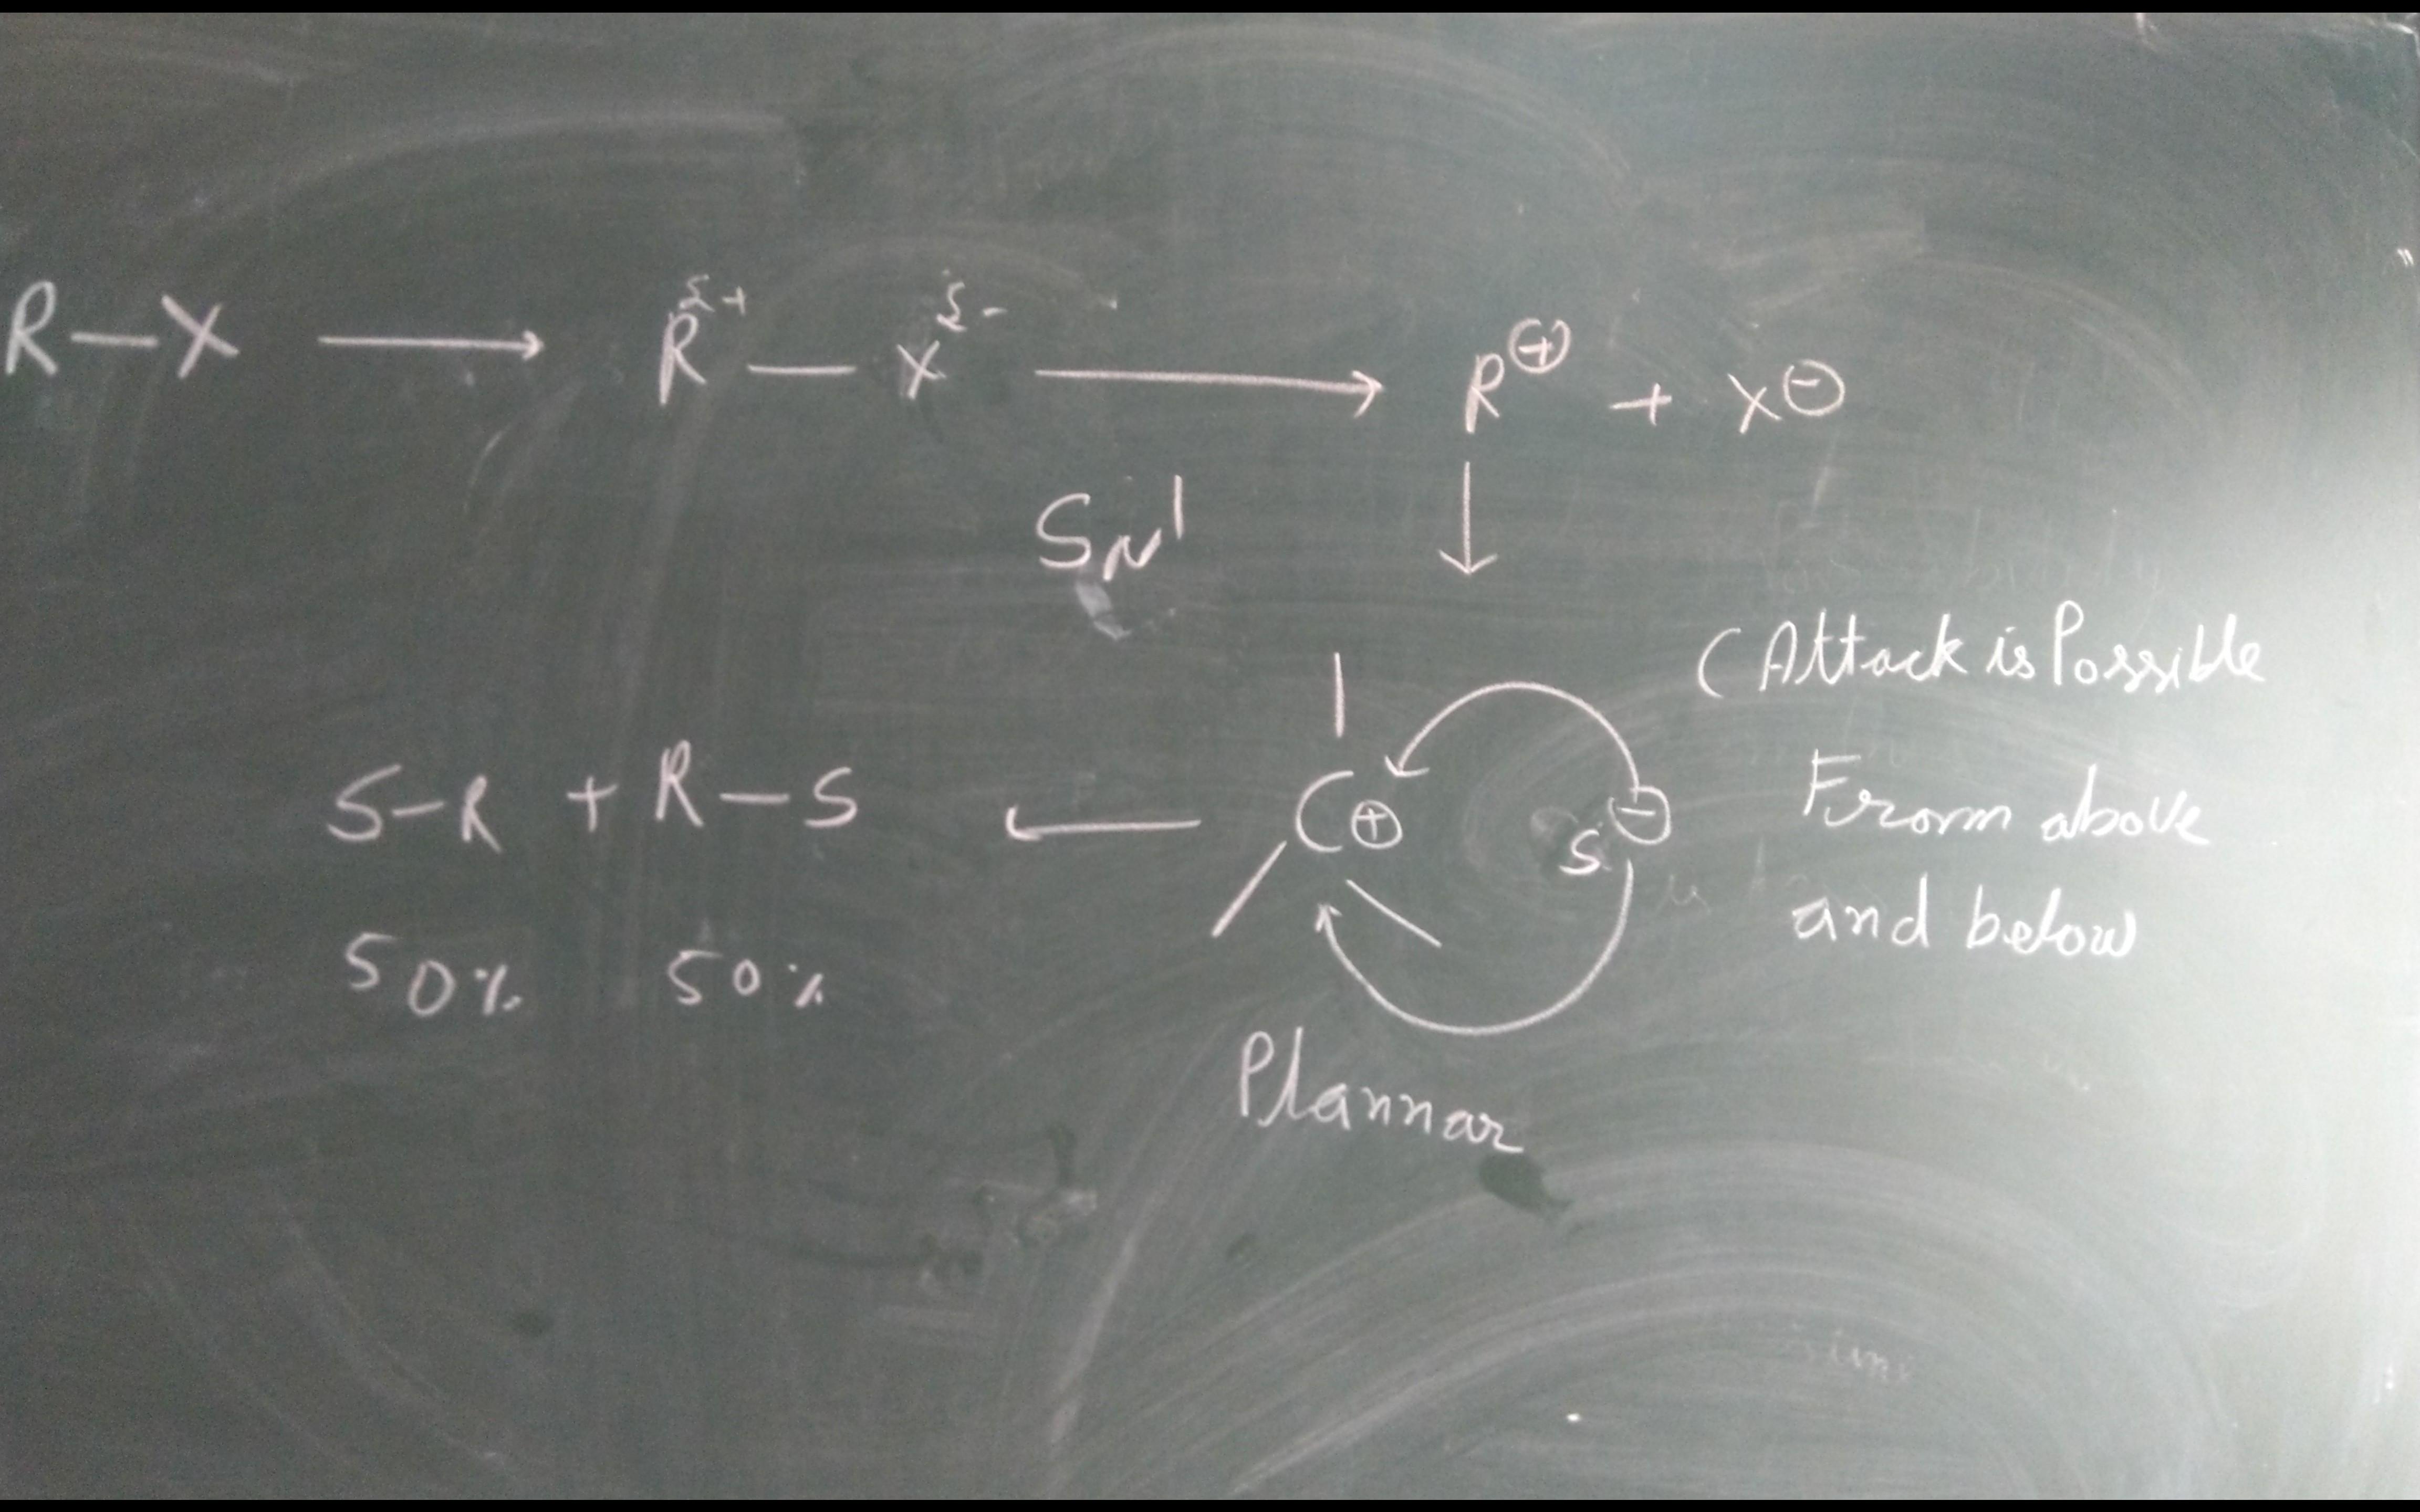 R—X ⟶ R^δ+ — X^δ- ⟶ R⊕ + X⊖
SN1
(Attack is Possible
From above
and below
S-R + R-S ⟵ C⊕ S⊖
50% 50%
Plannar